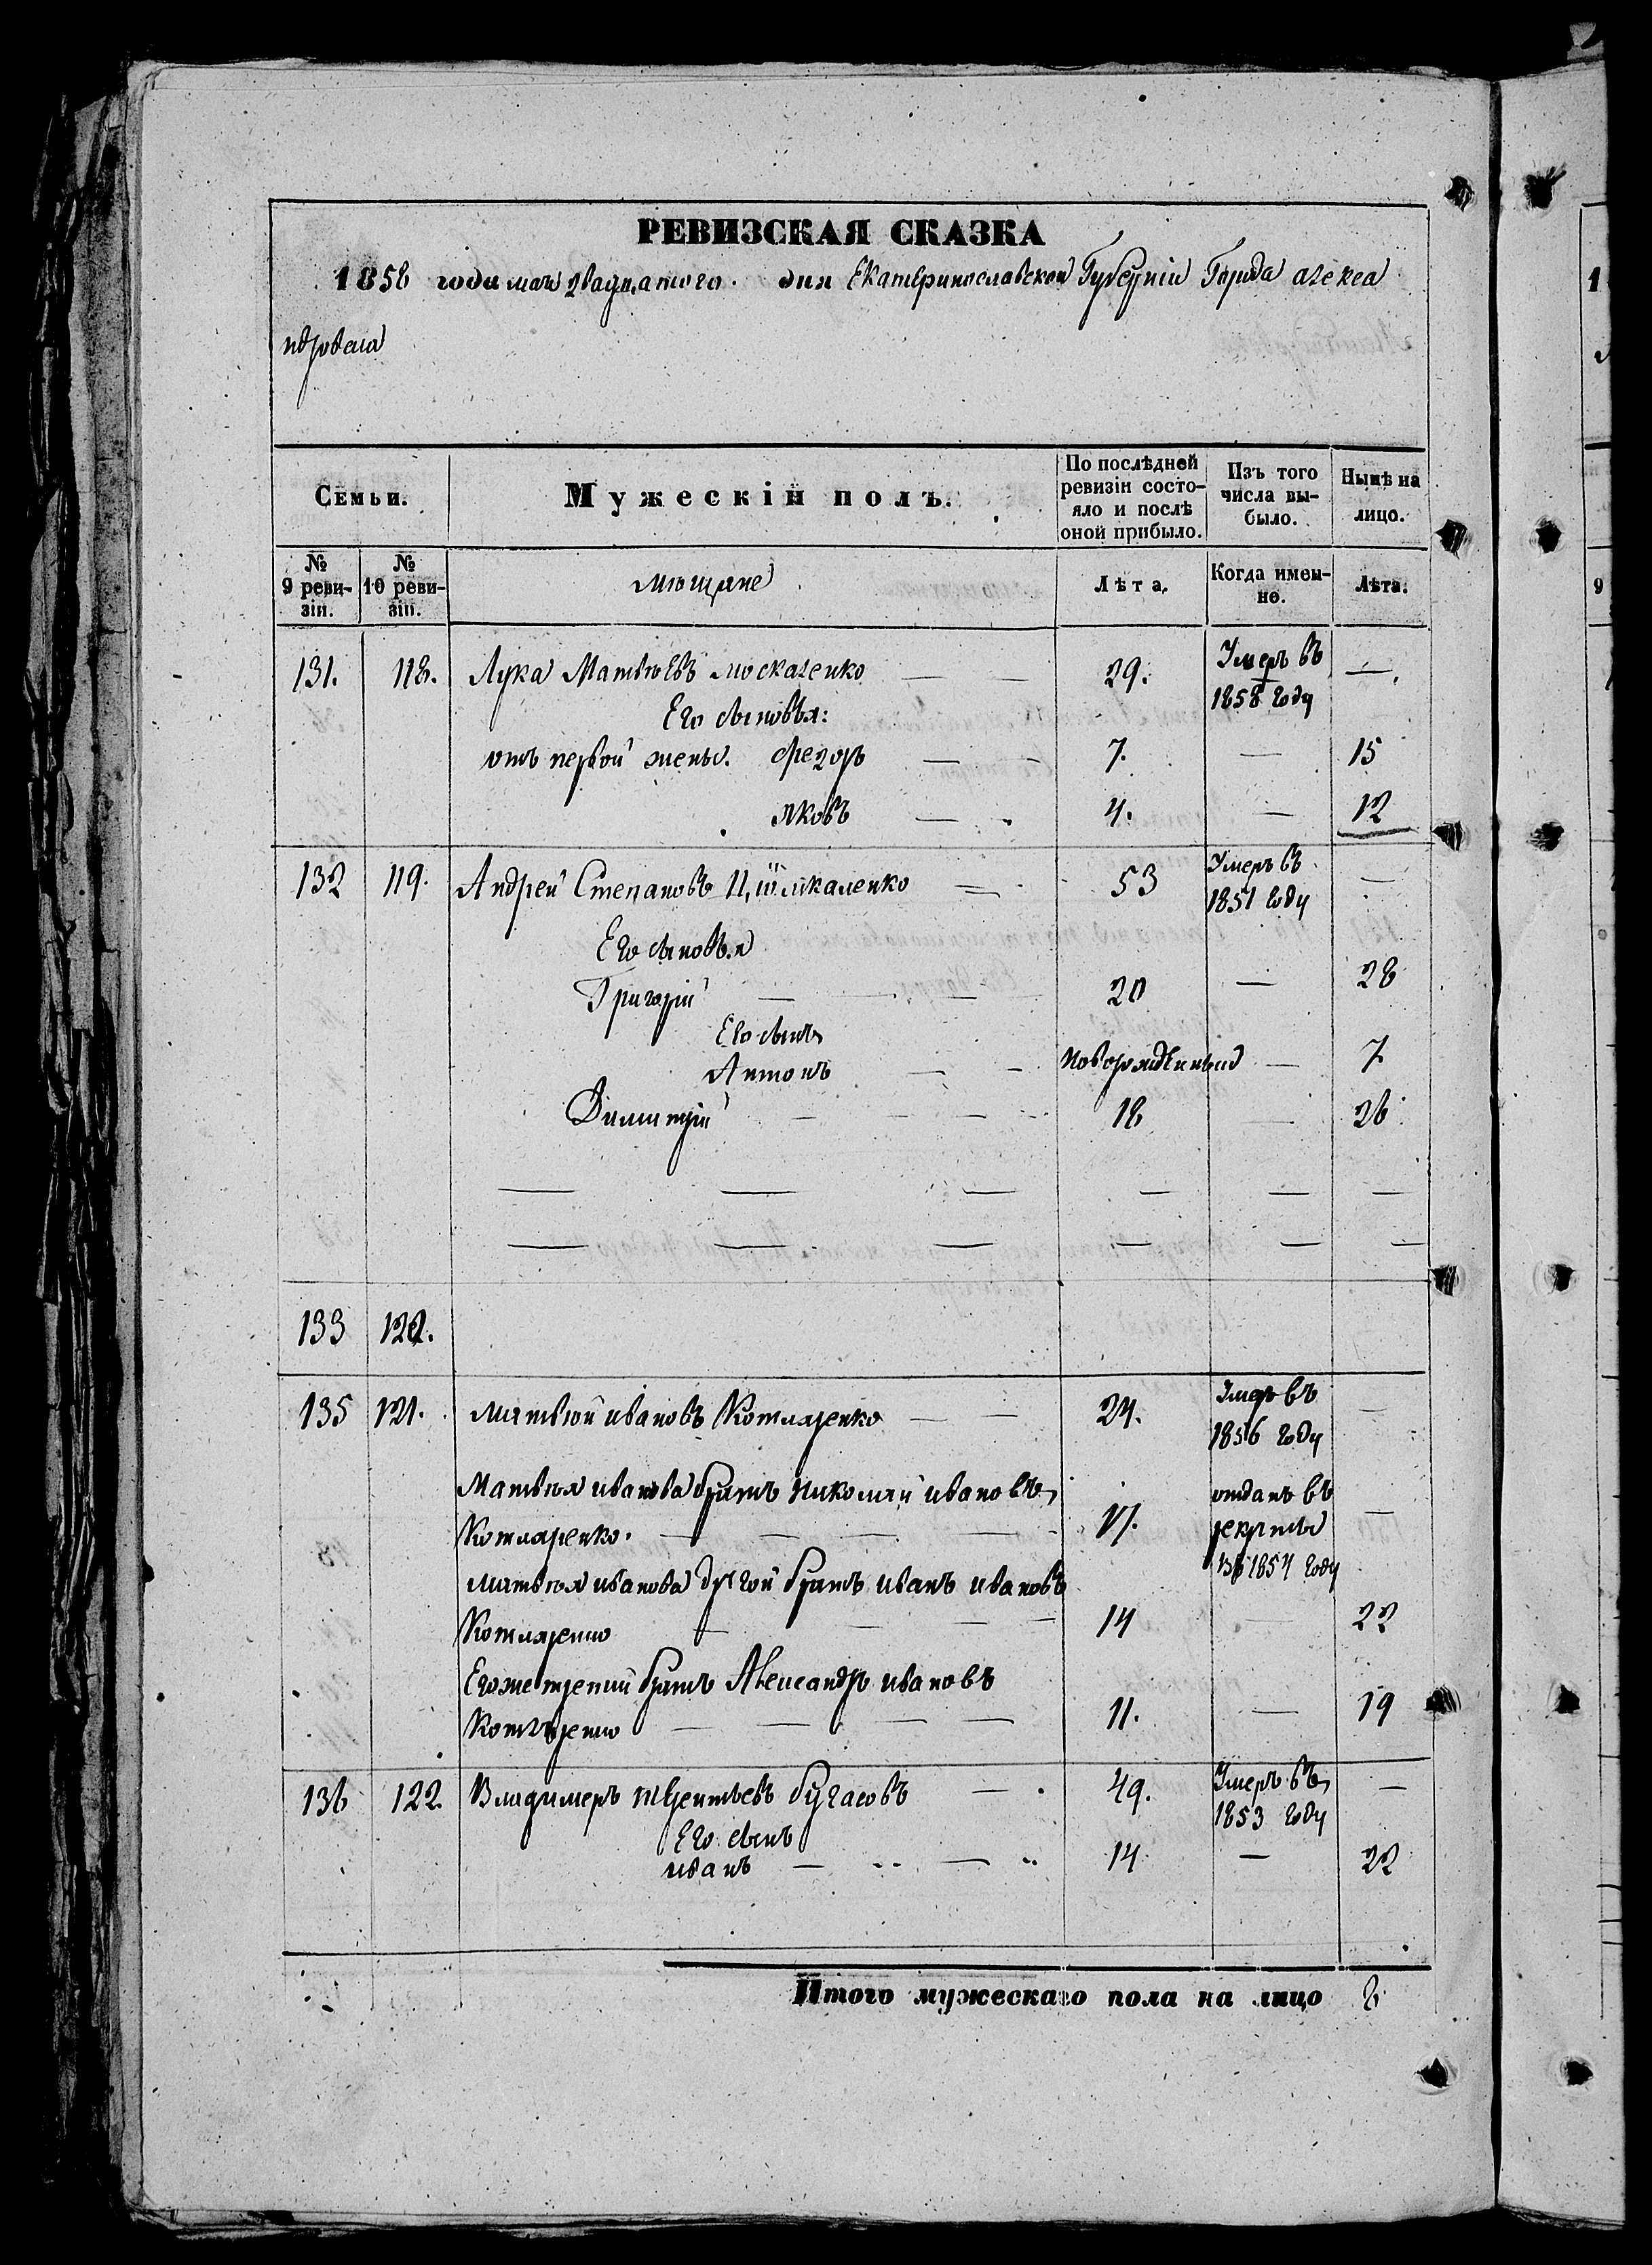 РЕВИЗСКАЯ СКАЗКА
1858 года мая двадцатого дня Екатеринославской Губерніи Города алекса
ндровска
Семьи. Мужескій полъ. По послѣдней ревизіи состояло и послѣ оной прибыло. Изъ того числа выбыло. Нынѣ на лицо.
№ 9 ревизіи. № 10 ревизіи. мющане Лѣта. Когда именно. Лѣта.
131. 118. Лука Матвюевъ москаленко — — 29. Умеръ въ 1858 году —
Его сыновья:
отъ первой жены. Федоръ — — 7. — 15
яковъ — 4. — 12
132 119. Андрей Степановъ — 53 Умеръ въ 1851 году —
Его сыновья
Григорій — — 20 — 28
Его сынъ
Антонъ — — новорожденный — 7
Димитрій — — — 18 — 26
— — — — — —
— — — — — —
133
135 121. Матвюй ивановъ Котляренко — — 24. Умеръ въ 1856 году —
Матвюя иванова братъ николай ивановъ
Котляренко. — — — — 17. отданъ въ рекруты въ 1854 году —
матвюя иванова другой братъ иванъ ивановъ
Котляренко — — — 14 — 22
Его же третий братъ Александръ ивановъ
Котляренко — — — — 11. — 19
136 122 Владимеръ терентьевъ — 49. Умеръ въ 1853 году —
Его сынъ
иванъ — — 14 — 22
Итого мужескаго пола на лицо 8
1
9